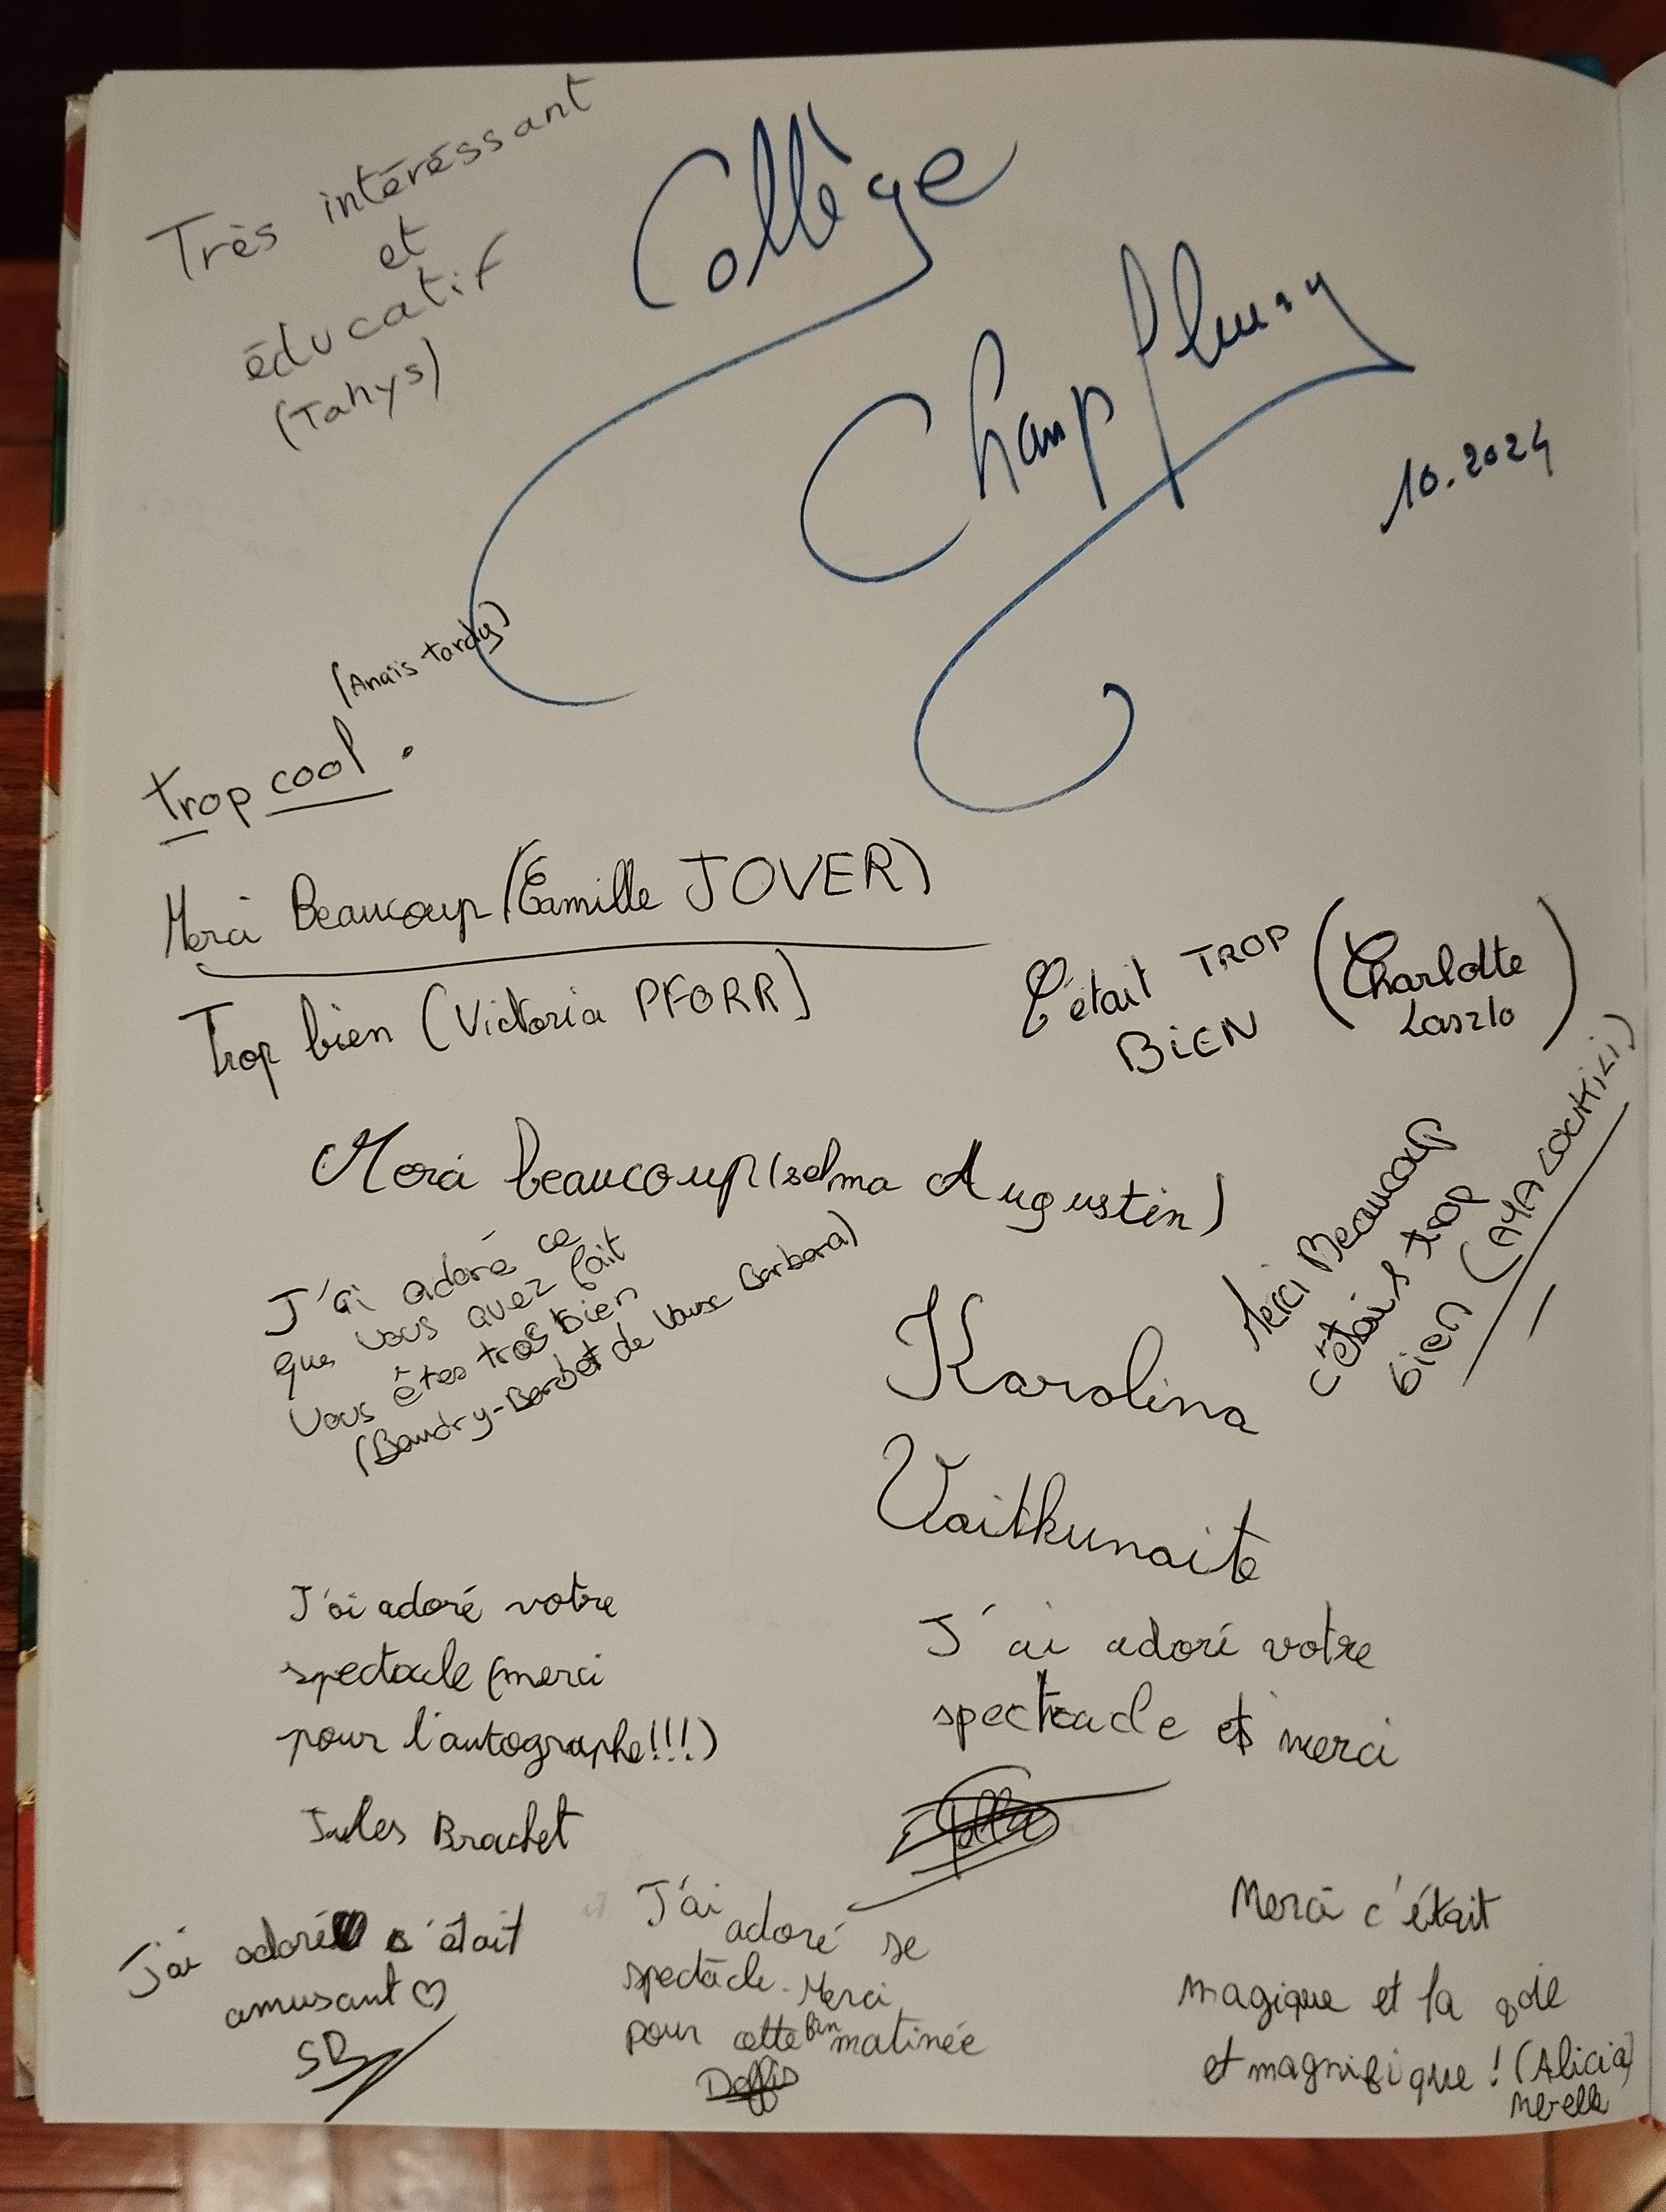 Très intéréssant
et
éducatif
(Tahys)
Collège
Champfleury
10.2024
(Anaïs tardy)
trop cool.
Merci Beaucoup (Camille JOVER)
Trop bien (Victoria PFORR)
C'était TROP
BIEN
(Charlotte
Laszlo)
Merci beaucoup (selma Augustin)
Merci Beaucoup
c'étais trop
bien (AYA LOUKILI)
J'ai adoré ce
que vous avez fait
Vous êtes tros bien
(Baudry-Barbot de Vaux Barbara)
Karolina
Vaitkunaite
J'ai adoré votre
spectacle et merci
J'ai adoré votre
spectacle (merci
pour l'autographe!!!)
Jules Brachet
J'ai adoré c'était
amusant ♡
SB
J'ai
adoré se
spectacle. Merci
pour cette matinée
Merci c'était
magique et la
et magnifique ! (Alicia)